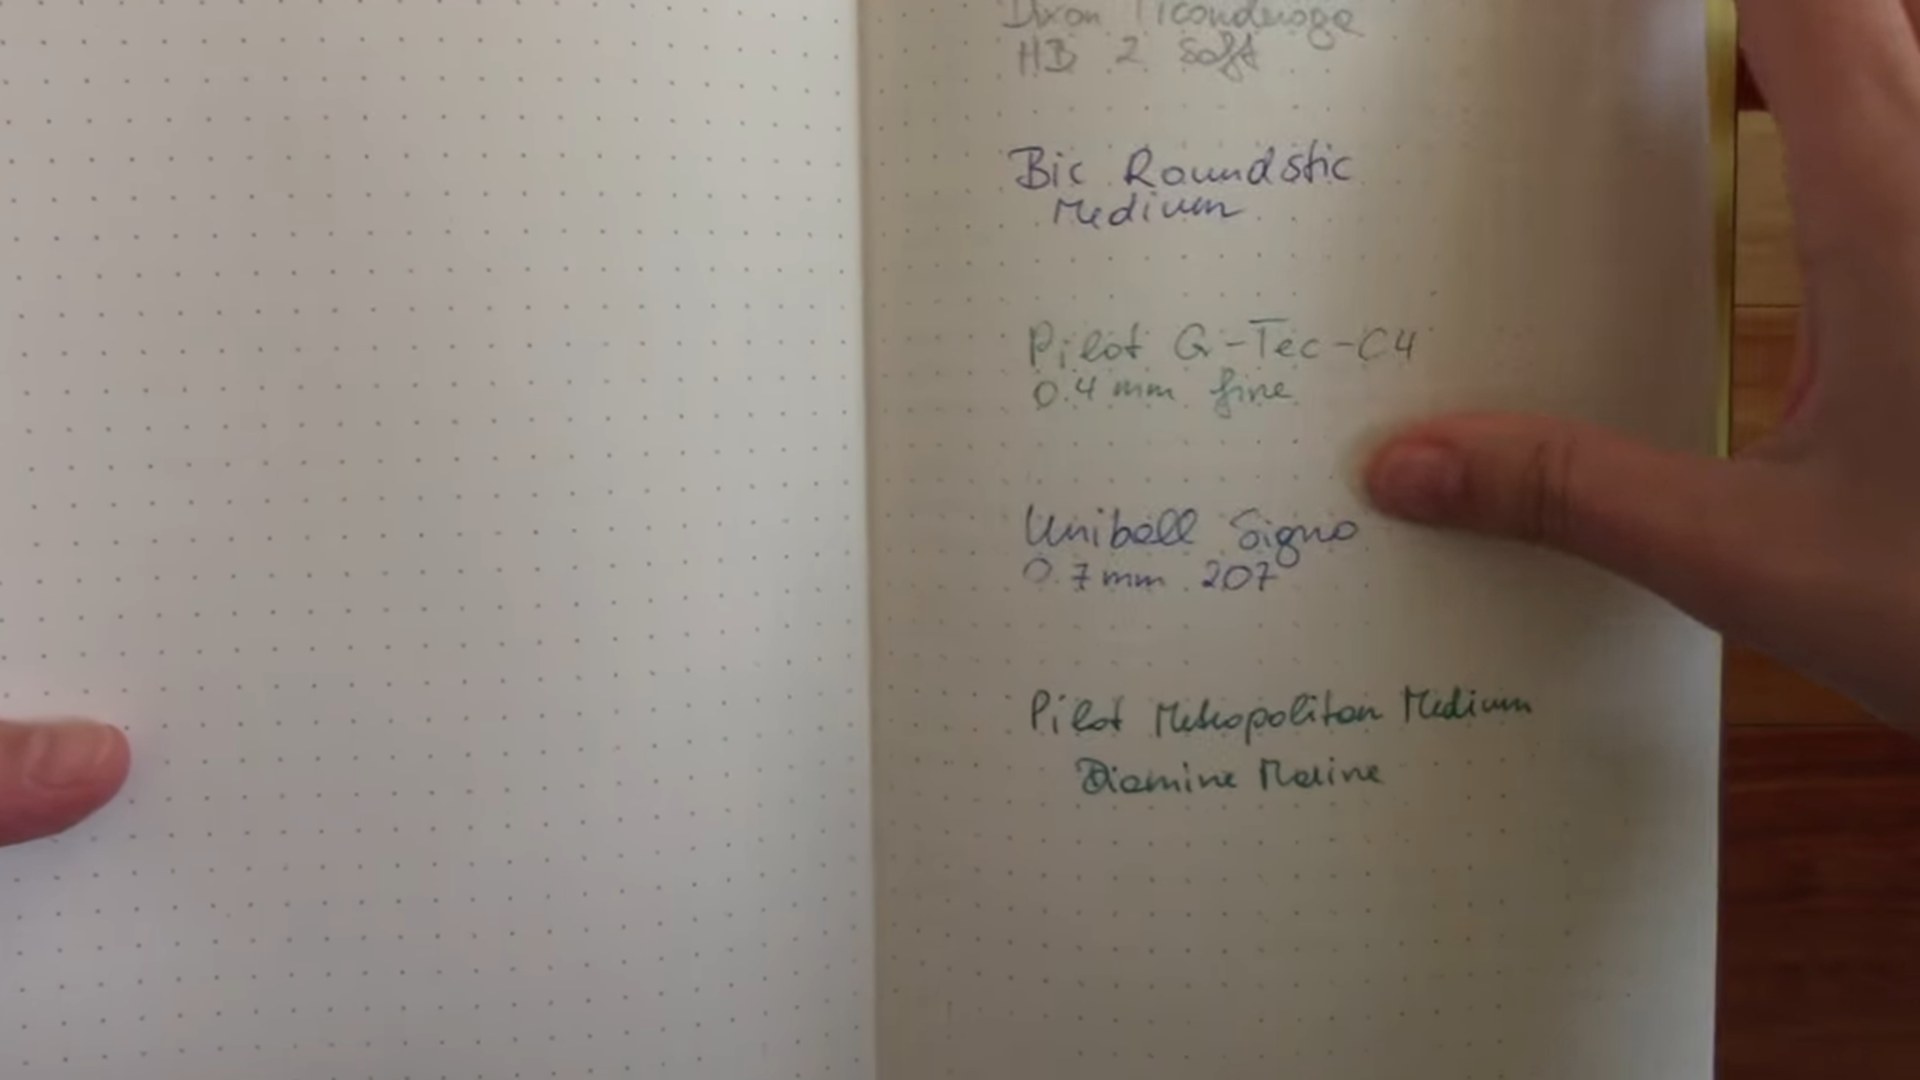 Dixon Ticonderoga
HB 2 Soft
Bic Roundstic
Medium
Pilot G-Tec-C4
0.4 mm fine
Uniball Signo
0.7 mm 207
Pilot Metropolitan Medium
Diamine Marine